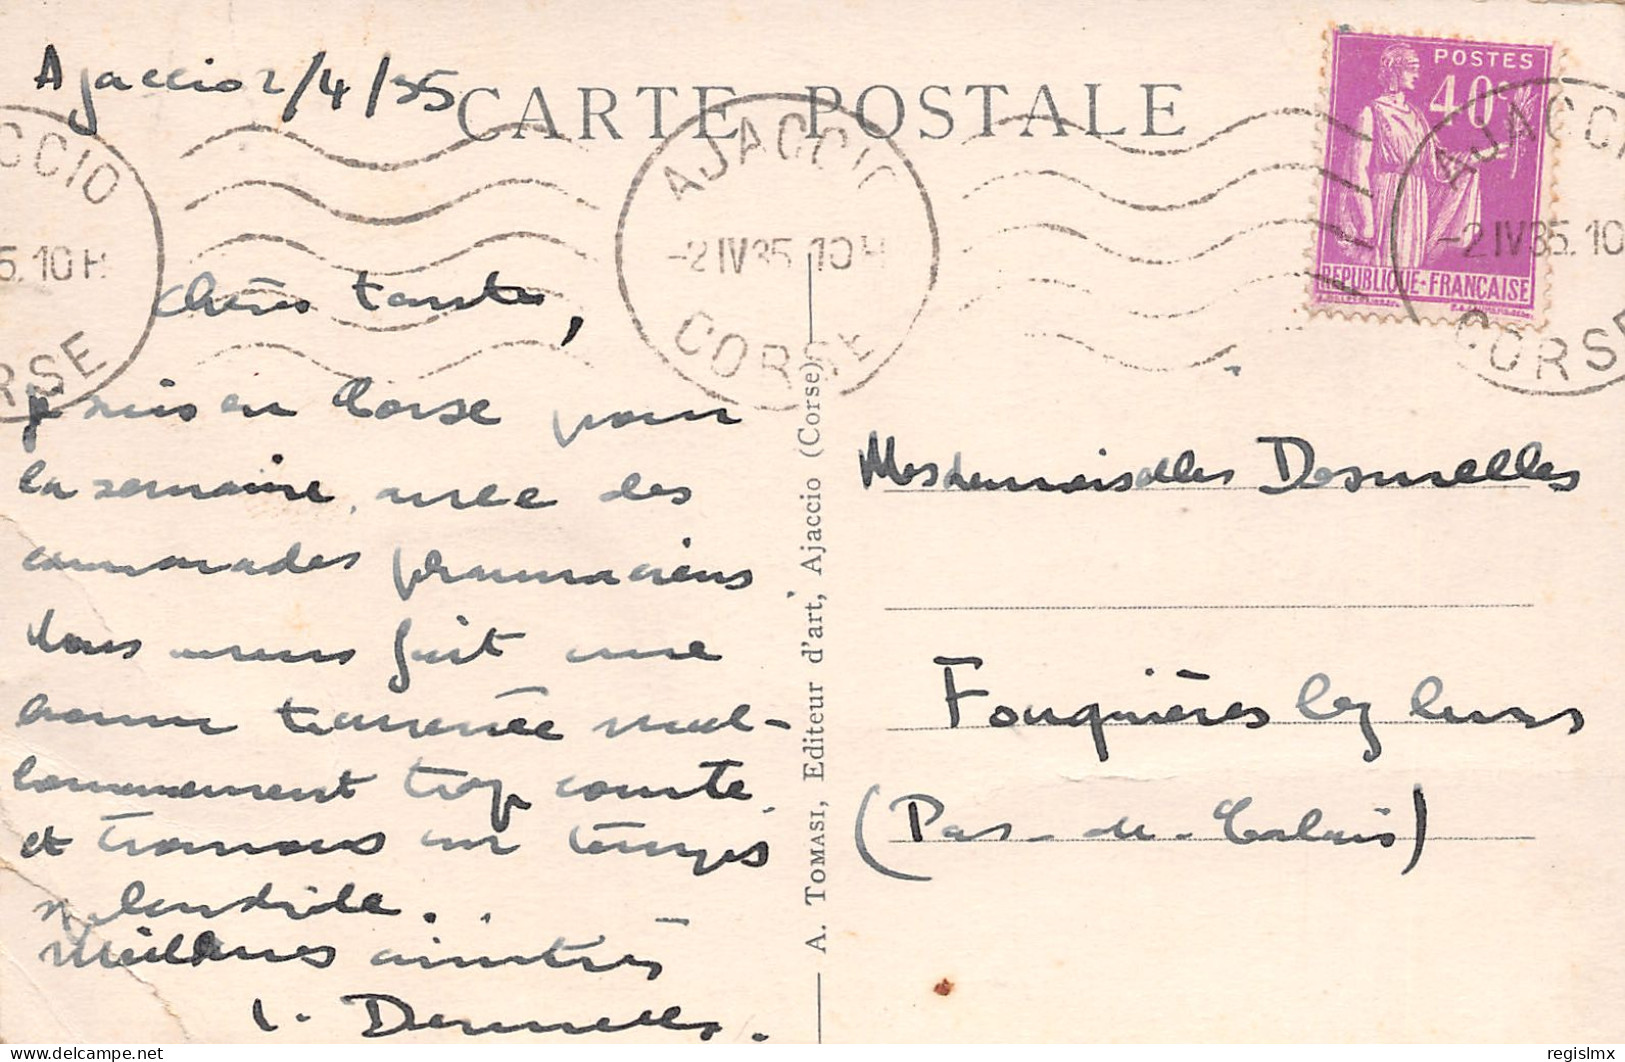 Ajaccio 2/4/35
CARTE POSTALE
POSTES
40c
REPUBLIQUE-FRANCAISE
AJACCIO
-2 IV 35. 10H
CORSE
AJACCIO
-2 IV 35. 10
CORSE
CCIO
5. 10H
RSE
Chères tantes,
Je suis en Corse pour
la semaine, avec des
camarades pharmaciens
Nous avons fait une
bonne traversée mal-
trop courte
et un temps
splendide.
Meilleures amitiés
Desmelles.
A. TOMASI, Editeur d'art, Ajaccio (Corse)
Mesdemoiselles Desmelles
Fouquières lez Lens
(Pas-de-Calais)
regislmx
delcampe.net